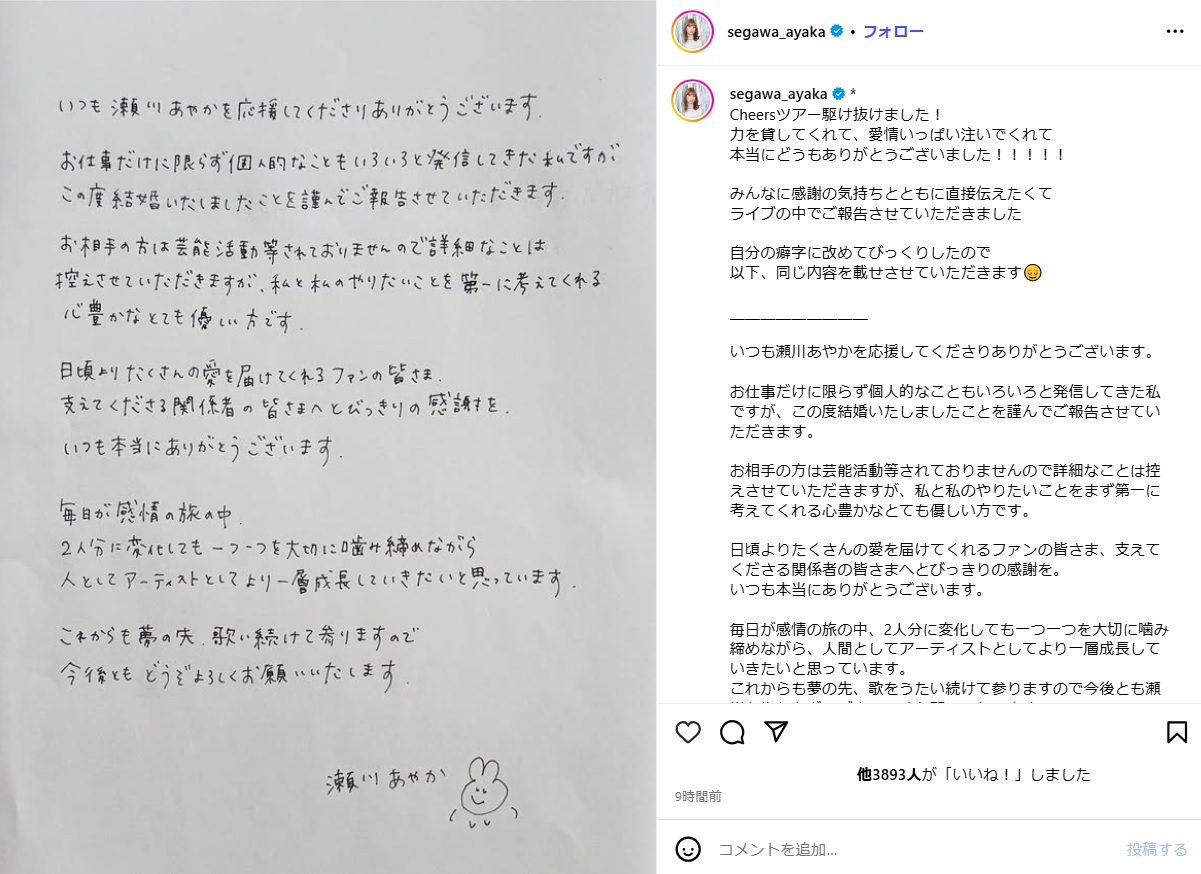 いつも瀬川あやかを応援してくださりありがとうございます.
お仕事だけに限らず個人的なこともいろいろと発信してきた私ですが
この度結婚いたしましたことを謹んでご報告させていただきます.
お相手の方は芸能活動等されておりませんので詳細なことは
控えさせていただきますが、私と私のやりたいことを第一に考えてくれる
心豊かなとても優しい方です.
日頃よりたくさんの愛を届けてくれるファンの皆さま.
支えてくださる関係者の皆さまへとびっきりの感謝を.
いつも本当にありがとうございます.
毎日が感情の旅の中.
2人分に変化しても一つ一つを大切に噛み締めながら
人としてアーティストとしてより一層成長していきたいと思っています.
これからも夢の先.歌い続けて参りますので
今後ともどうぞよろしくお願いいたします.
瀬川あやか
segawa_ayaka • フォロー
segawa_ayaka *
Cheersツアー駆け抜けました！
力を貸してくれて、愛情いっぱい注いでくれて
本当にどうもありがとうございました！！！！！
みんなに感謝の気持ちとともに直接伝えたくて
ライブの中でご報告させていただきました
自分の癖字に改めてびっくりしたので
以下、同じ内容を載せさせていただきます😌
——————————
いつも瀬川あやかを応援してくださりありがとうございます。
お仕事だけに限らず個人的なこともいろいろと発信してきた私
ですが、この度結婚いたしましたことを謹んでご報告させてい
ただきます。
お相手の方は芸能活動等されておりませんので詳細なことは控
えさせていただきますが、私と私のやりたいことをまず第一に
考えてくれる心豊かなとても優しい方です。
日頃よりたくさんの愛を届けてくれるファンの皆さま、支えて
くださる関係者の皆さまへとびっきりの感謝を。
いつも本当にありがとうございます。
毎日が感情の旅の中、2人分に変化しても一つ一つを大切に噛み
締めながら、人間としてアーティストとしてより一層成長して
いきたいと思っています。
これからも夢の先、歌をうたい続けて参りますので今後とも瀬
他3893人が「いいね！」しました
9時間前
コメントを追加...
投稿する